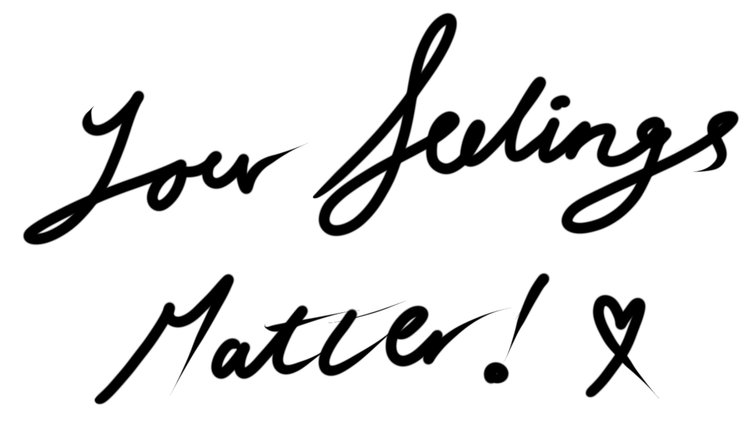 Your feelings
Matter!